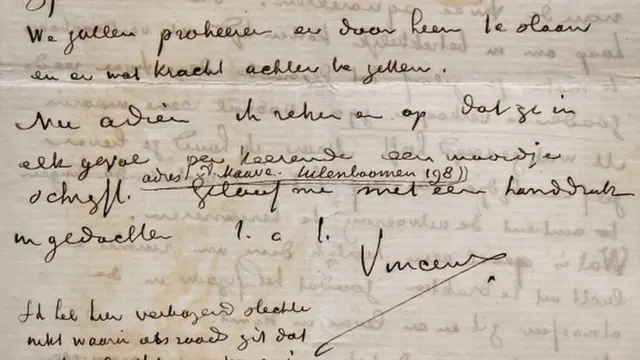 We zullen probeeren er door heen te slaan
en er wat kracht achter te zetten.
Nu adieu ik reken er op dat ge in
elk geval per keerende een woordje
adres Mauve Uilenboomen 198))
schrijft. Geloof me met een handdruk
in gedachten t. à t.
Vincent
Ik heb hier verbazend slechte
inkt waarin iets zit dat